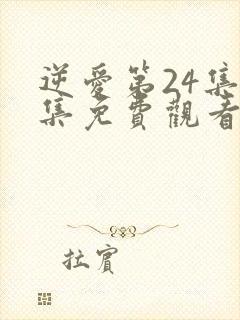 逆愛第24集
集免費觀看
拉賓